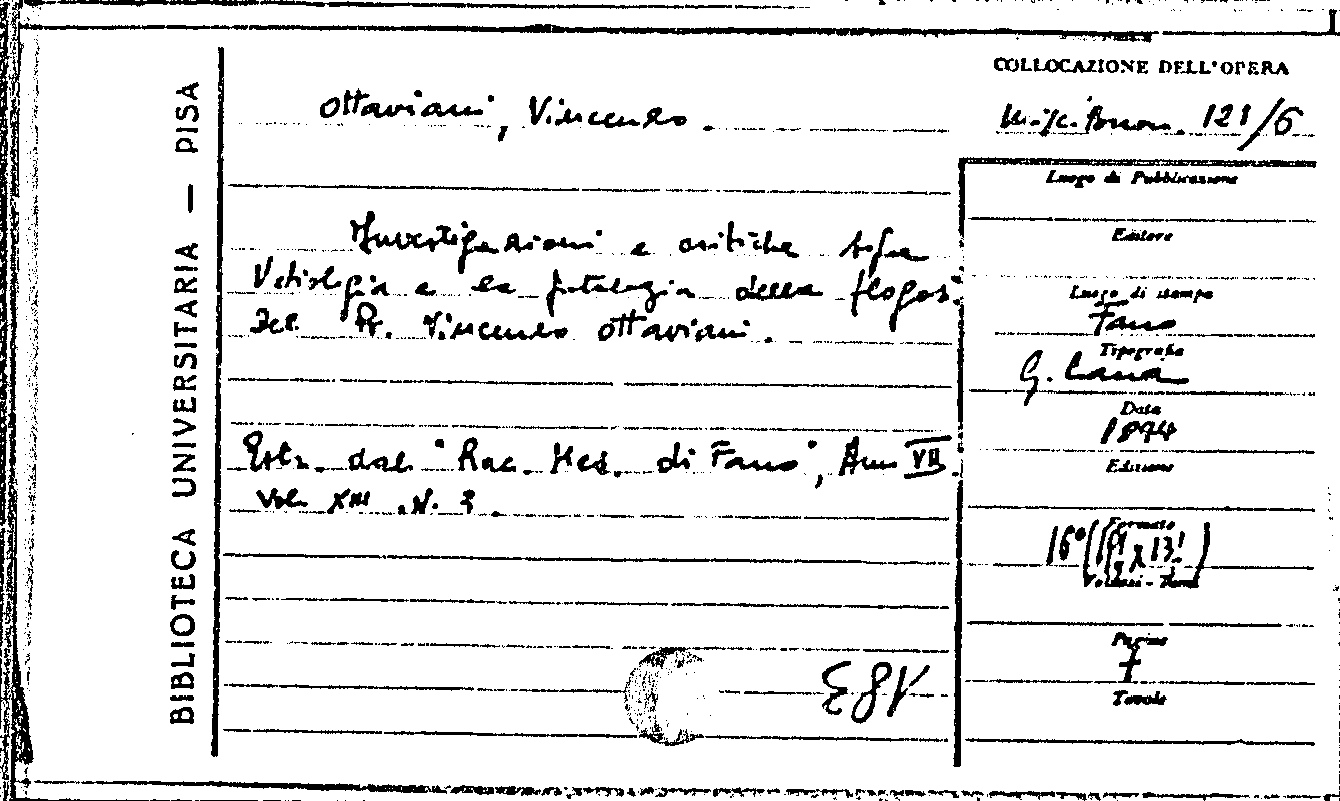 BIBLIOTECA UNIVERSITARIA — PISA
Ottaviani, Vincenzo.
Investigazioni e critiche sopra
l'etiologia e la patologia della flogosi
Del Pr. Vincenzo Ottaviani.
Estr. dal "Rac. Med. di Fano", Anno VII.
Vol. XIII. N. 3.
EGV
COLLOCAZIONE DELL'OPERA
121/6
Luogo di Pubblicazione
Editore
Luogo di stampa
Fano
Tipografia
G. Lana
Data
1874
Edizione
Formato
16° (
Volumi - Tomi
Pagine
7
Tavole